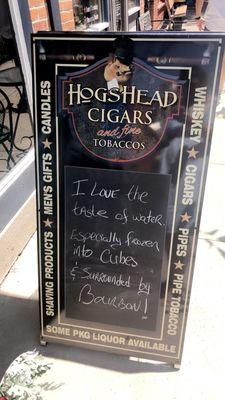 HOGSHEAD
CIGARS
and fine
TOBACCOS
CANDLES ★ MEN'S GIFTS ★ SHAVING PRODUCTS
WHISKEY ★ CIGARS ★ PIPES ★ PIPE TOBACCO
I LOVE the
taste of water.
Especially frozen
into Cubes
& Surrounded by
Bourbon!
SOME PKG LIQUOR AVAILABLE